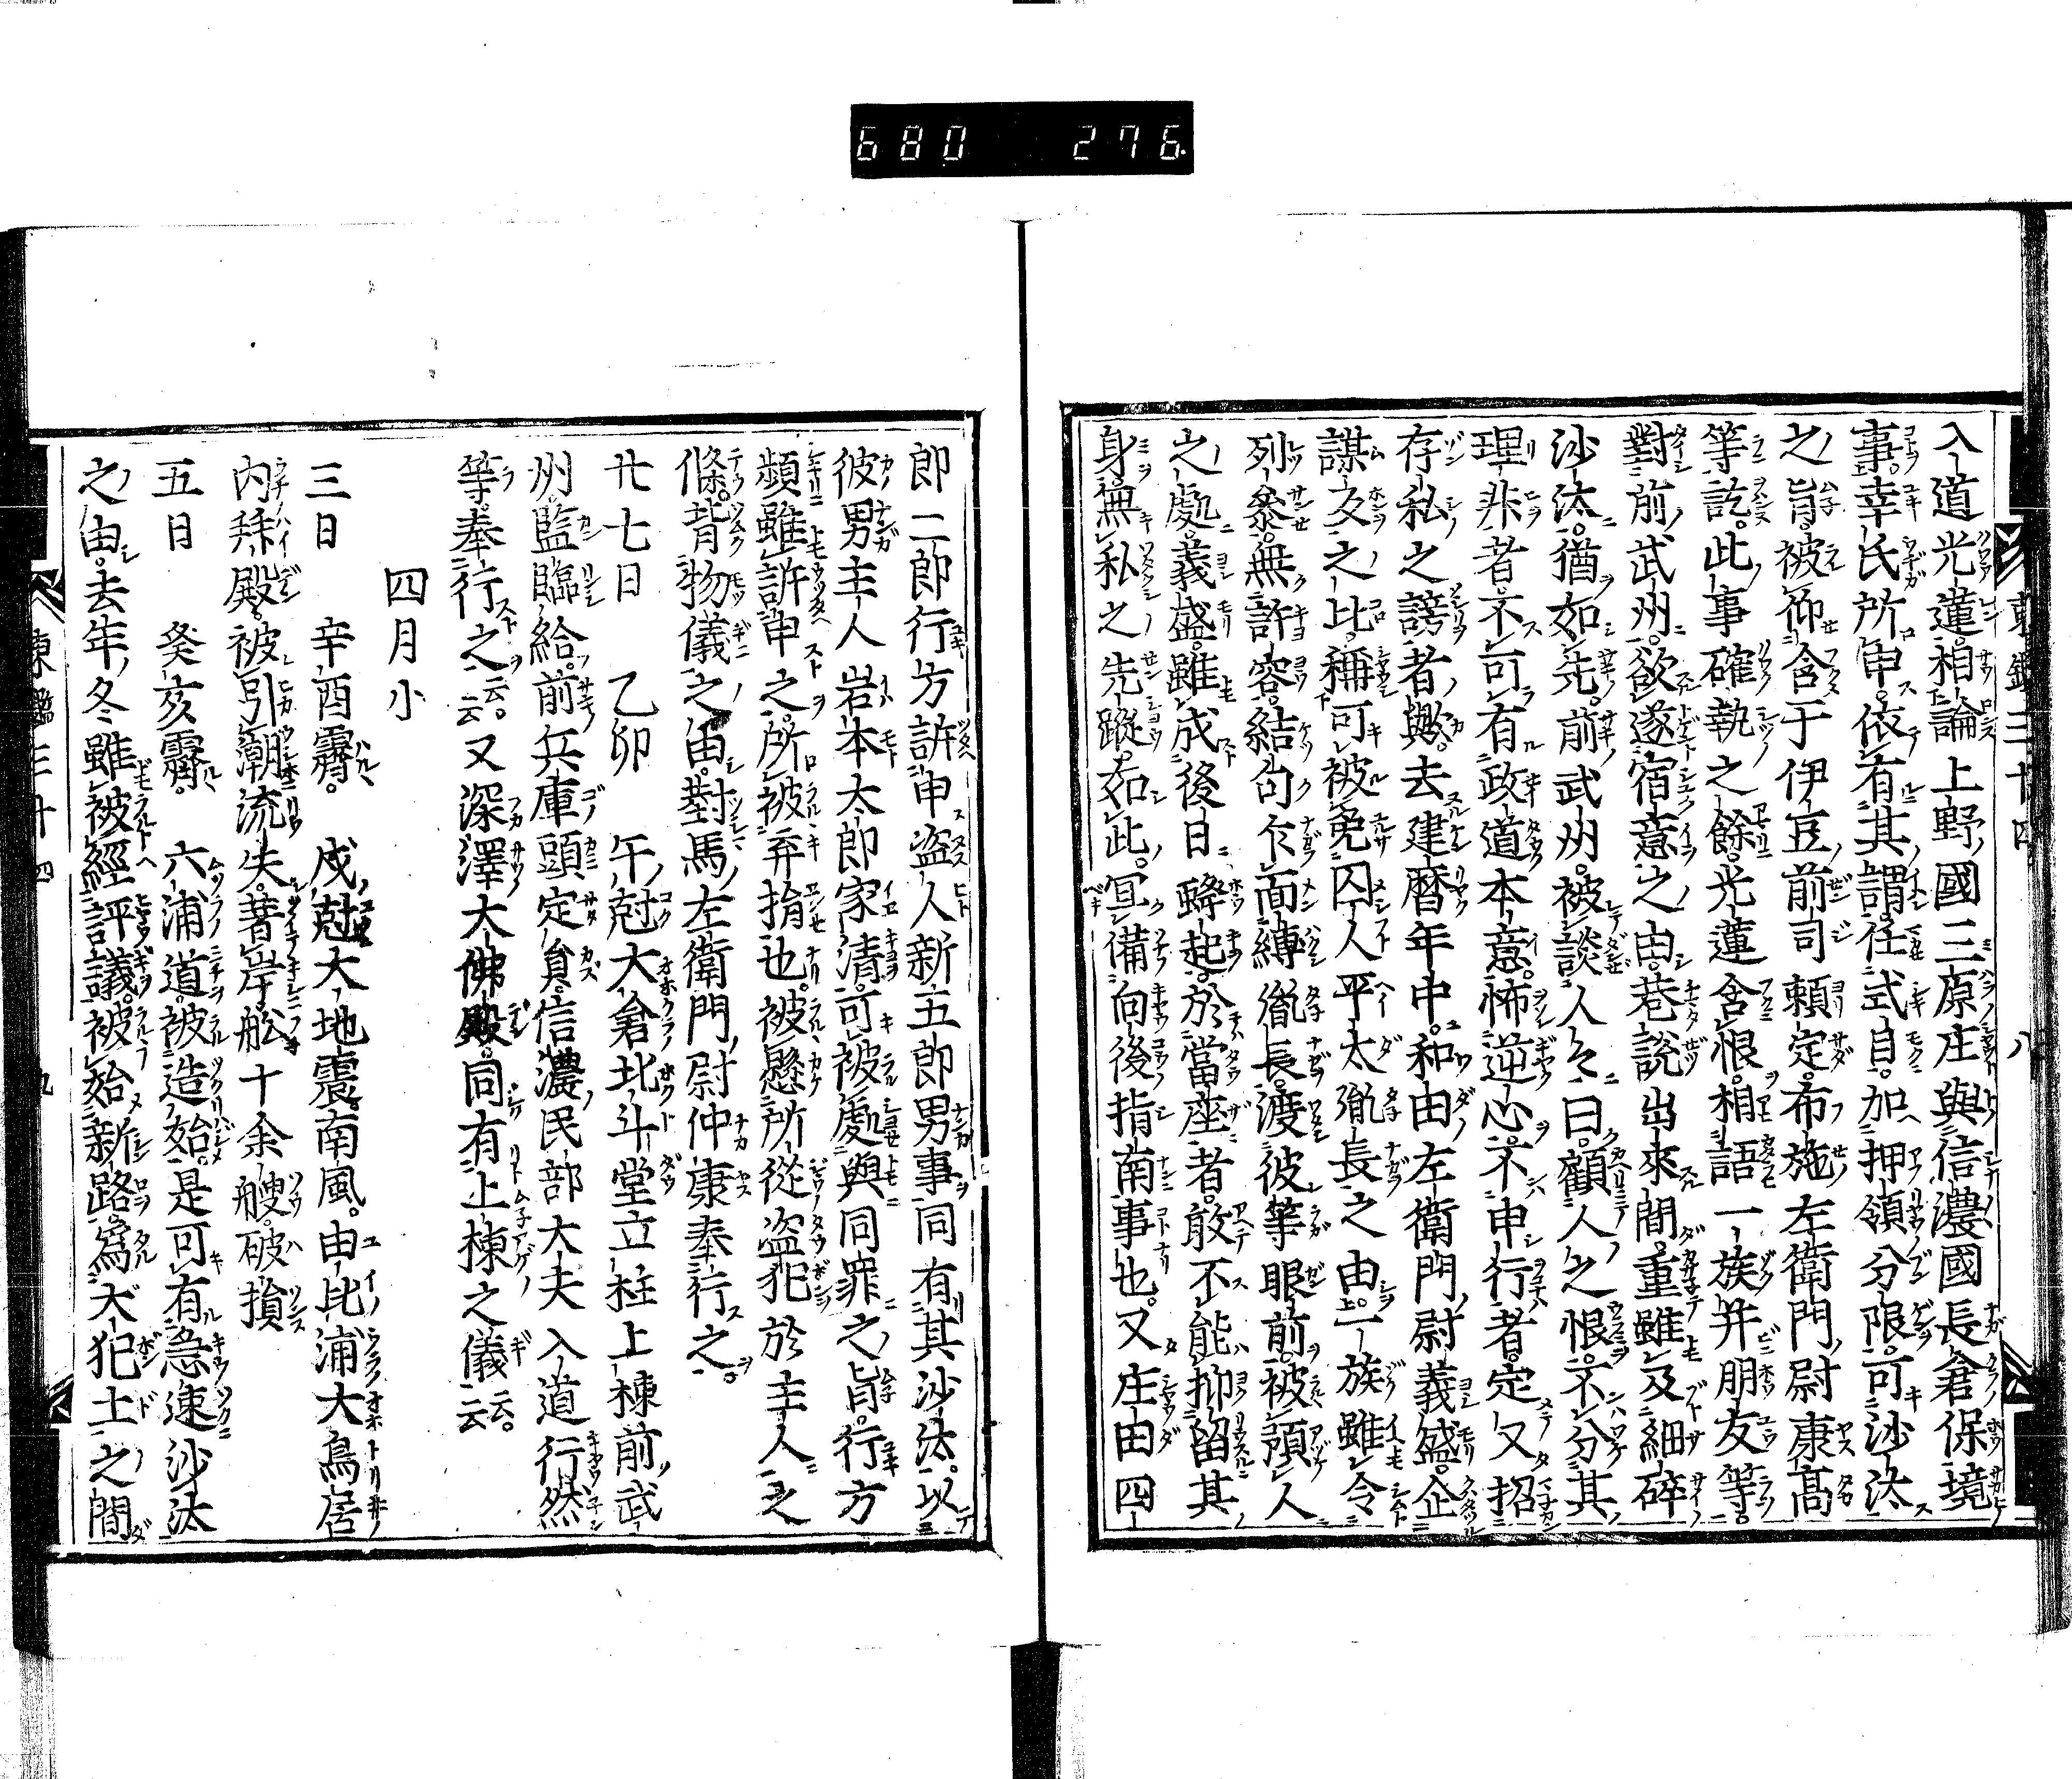 680 276
入道光蓮。相論上野國三原庄與信濃國長倉保境
事。幸氏所申。依有其謂。任式目。加押領分限。可沙汰
之旨。被仰含于伊豆前司頼定。布施左衛門尉康髙
等訖。此事確執之餘。光蓮含恨。相語一族幷朋友等。
對前武州。欲遂宿意之由。巷説出來間。重雖及細碎
沙汰。猶如先。前武州。被談人々曰。顧人之恨。不分其
理非者。不可有政道本意。怖逆心。不申行者。定又招
存私之謗者歟。去建曆年中。和田左衛門尉義盛。企
謀叛之比。稱可被免囚人平太胤長之由。一族雖令
列參。無許容。結句乍面縛胤長。渡彼等眼前。被預人
之處。義盛。雖成後日蜂起。於當座者。敢不能抑留其
身。無私之先蹤。如此。宜備向後指南事也。又庄田四
郎二郎行方訴申盗人新五郎男事。同有其沙汰。以
彼男主人岩本太郎家淸。可被處與同罪之旨。行方
頻雖訴申之。所被弃捐也。被懸所從盗犯於主人之
條。背物儀之由。對馬左衛門尉仲康奉行之。
廿七日 乙卯 午尅大倉北斗堂立柱上棟前武
州。監臨給。前兵庫頭定員。信濃民部大夫入道行然
等奉行之云云。又深澤大佛殿。同有上棟之儀云云。
四月小
三日 辛酉霽。 戌尅大地震。南風。由比浦大鳥居
内拜殿。被引潮流失。著岸舩十余艘。破損
五日 癸亥霽。 六浦道。被造始。是可有急速沙汰
之由。去年冬雖被經評議。被始新路爲大犯土之間
東鑑三十四 八
東鑑三十四 九